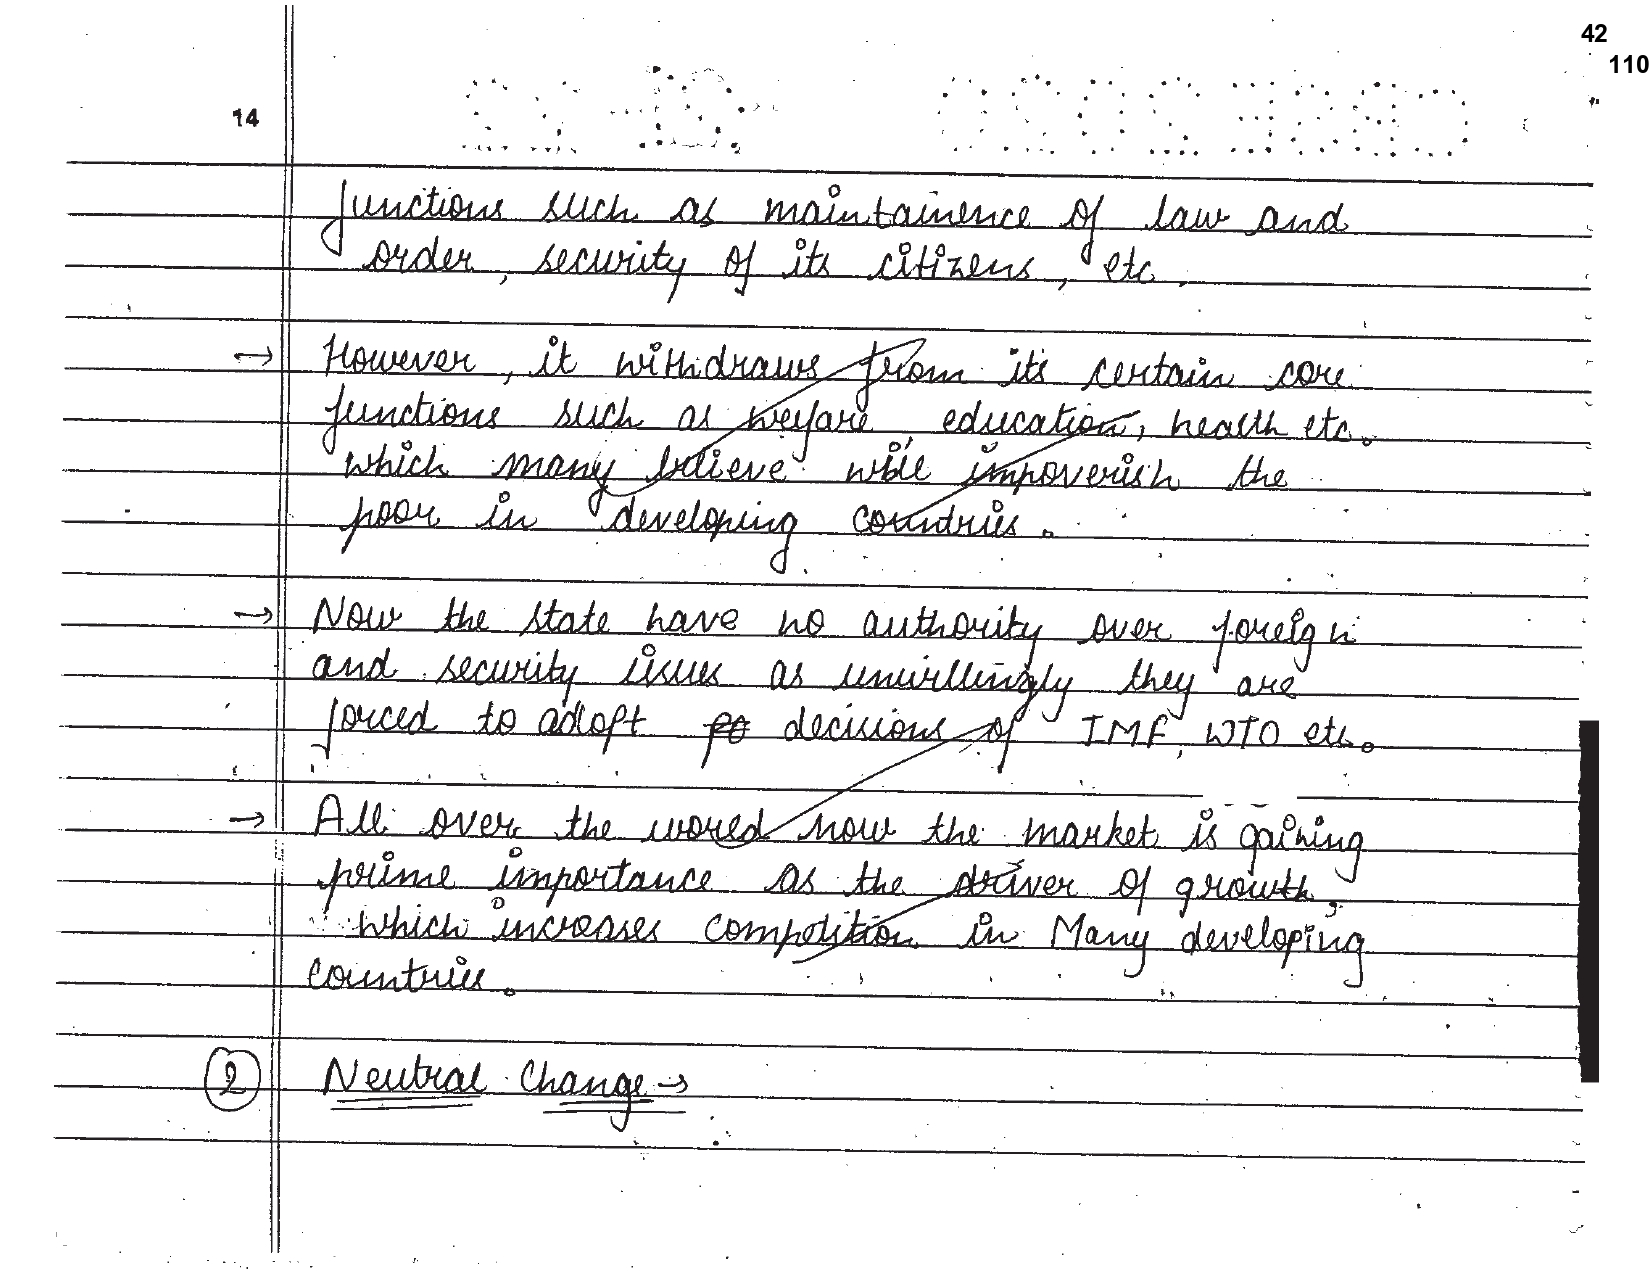 42
110
14
functions such as maintainence of law and
order, security of its citizens, etc.
→ However, it withdraws from its certain core
functions such as welfare, education, health etc.
which many believe will impoverish the
poor in developing countries.
→ Now the state have no authority over foreign
and security issues as unwillingly they are
forced to adopt decisions of IMF, WTO etc.
→ All over the world now the market is gaining
prime importance as the driver of growth,
which increases competition in Many developing
countries.
2 Neutral Change →